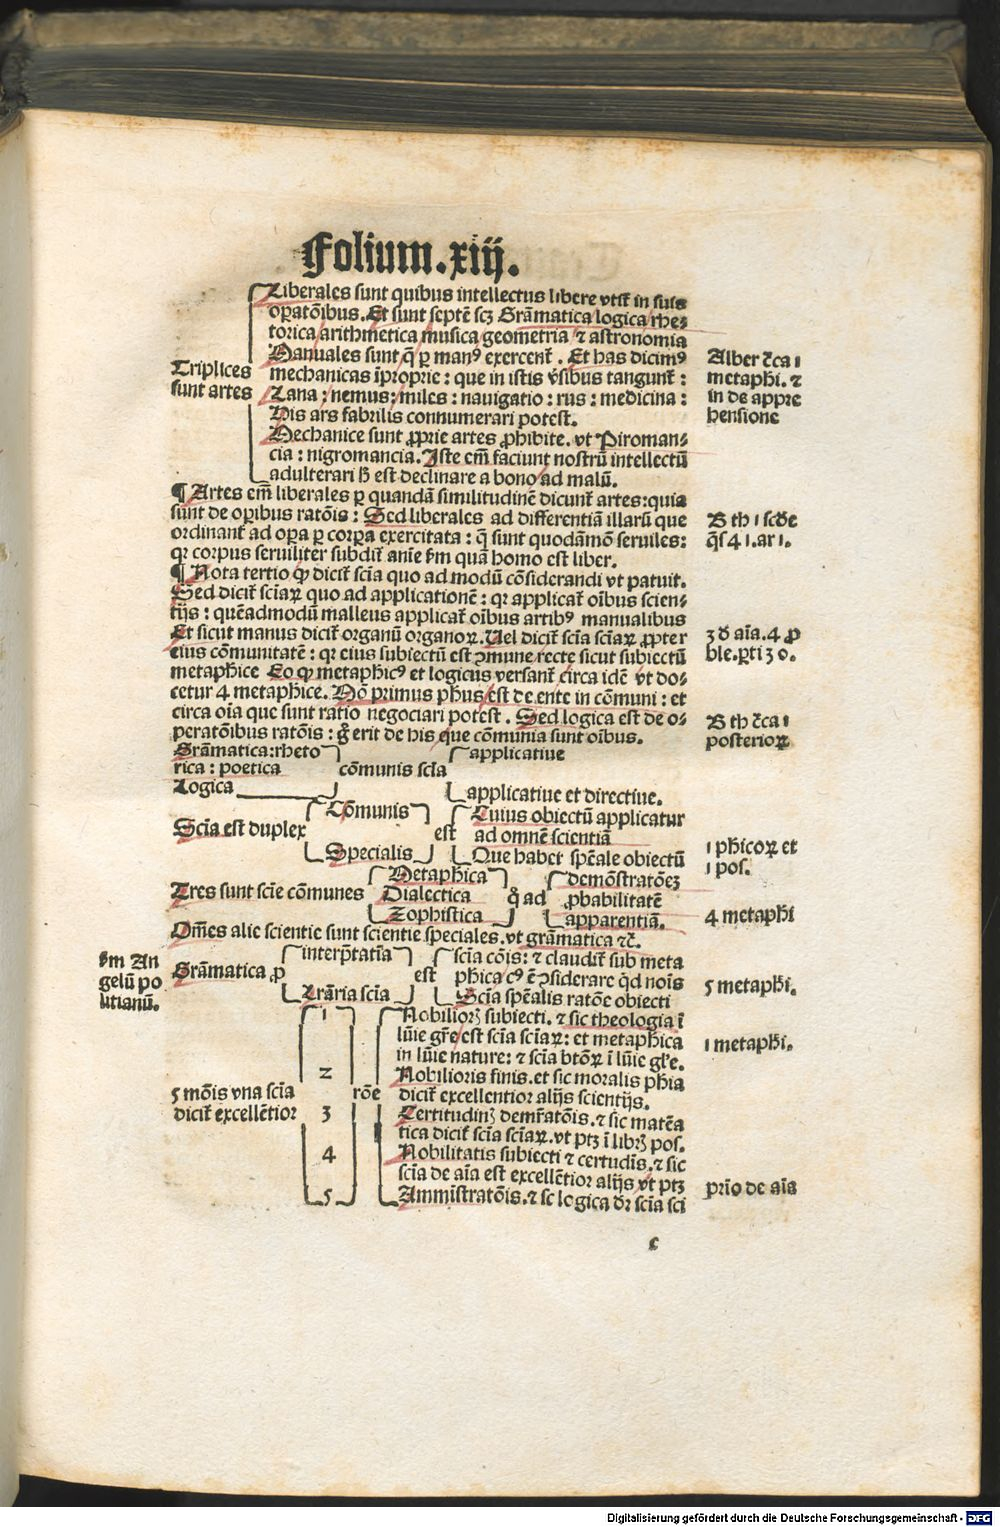 Folium.xiij.
Liberales sunt quibus intellectus libere vtit̄ in suis
oꝑatōibus. Et sunt septē scꝫ Grāmatica logica rhe⸗
torica arithmetica musica geometria ⁊ astronomia
Manuales sunt q̄ ꝑ manꝰ exercent̄. Et has dicimꝰ
mechanicas īproprie: que in istis v̄sibus tangunt̄:
Lana: nemus: miles: nauigatio: rus: medicina:
His ars fabrilis connumerari potest.
Mechanice sunt ꝓprie artes ꝓhibite. vt Piroman⸗
cia: nigromancia. Iste em̄ faciunt nostrū intellectū
adulterari hͦ est declinare a bono ad malū.
Triplices
sunt artes
Alber t̄ca 1
metaph̄i. ⁊
in de appre
hensione
¶ Artes em̄ liberales ꝑ quandā similitudinē dicunt̄ artes: quia
sunt de oꝑibus ratōis: Sed liberales ad differentiā illarū que
ordinant̄ ad oꝑa ꝑ corꝑa exercitata: q̄ sunt quodāmō seruiles:
qꝛ corpus seruiliter subdit̄ anie ẜm quā homo est liber.
B th 1 scd̄e
q̄s 4 1. ar 1.
¶ Nota tertio ꝙ dicit̄ sciā quo ad modū cōsiderandi vt patuit.
Sed dicit̄ sciaꝝ quo ad applicationē: qꝛ applicat̄ oībus scien⸗
tijs: quēadmodū malleus applicat̄ oībus artibꝰ manualibus
Et sicut manus dicit̄ organū organoꝝ. Uel dicit̄ sciā sciaꝝ ꝓpter
eius cōmunitatē: qꝛ eius subiectū est ↄmune recte sicut subiectū
metaphice Eo ꝙ metaphicꝰ et logicus versant̄ circa idē vt do⸗
cetur 4 metaphice. Nō primus phūs est de ente in cōmuni: et
circa oīa que sunt ratio negociari potest. Sed logica est de o⸗
peratōibus ratōis: g̊ erit de his que cōmunia sunt oībus.
3 d̄ aīa. 4 ꝓ
ble. ꝑti 3 0.
B th t̄ca 1
posterioꝝ
Grāmatica: rheto
rica: poetica
Logica
cōmunis sciā
applicatiue
applicatiue et directiue.
Sciā est duplex
Cōmunis
Specialis
est
Cuius obiectū applicatur
ad omnē scientiā
Que habet spēale obiectū
1 ph̄icoꝝ et
1 pos.
Tres sunt scīe cōmunes
Metaphica
Dialectica
Sophistica
q̊ ad
demōstratōeꝫ
ꝓbabilitatē
apparentiā.
4 metaph̄i
Om̄es alie scientie sunt scientie speciales. vt grāmatica ⁊c̄.
ẜm An
gelū po
litianū.
Grāmatica ꝓ
interp̄tatīa
Lrāria sciā
est
sciā cōis: ⁊ claudit̄ sub meta
phica cꝰ ē ↄsiderare q̇d nōis
Sciā spēalis ratōe obiecti
5 metaph̄i.
5 mōis vna sciā
dicit̄ excellētior
1
2
3
4
5
rōe
Nobilioꝝ subiecti. ⁊ sic theologia ī
lūie gr̄e est sciā sciaꝝ: et metaphica
in lūie nature: ⁊ sciā btōꝝ ī lūie gl̄e.
Nobilioris finis. et sic moralis phīa
dicit̄ excellentior alijs scientijs.
Certitudinꝫ dem̄ratōis. ⁊ sic matēa
tica dicit̄ sciā sciaꝝ. vt ptꝫ ī librꝫ pos.
Nobilitatis subiecti ⁊ certudīs. ⁊ sic
sciā de aīa est excellētior alijs vt ptꝫ
Amministratōis. ⁊ sc logica dꝛ sciā sci
1 metaph̄i.
prīo de aīa
c
Digitalisierung gefördert durch die Deutsche Forschungsgemeinschaft - DFG